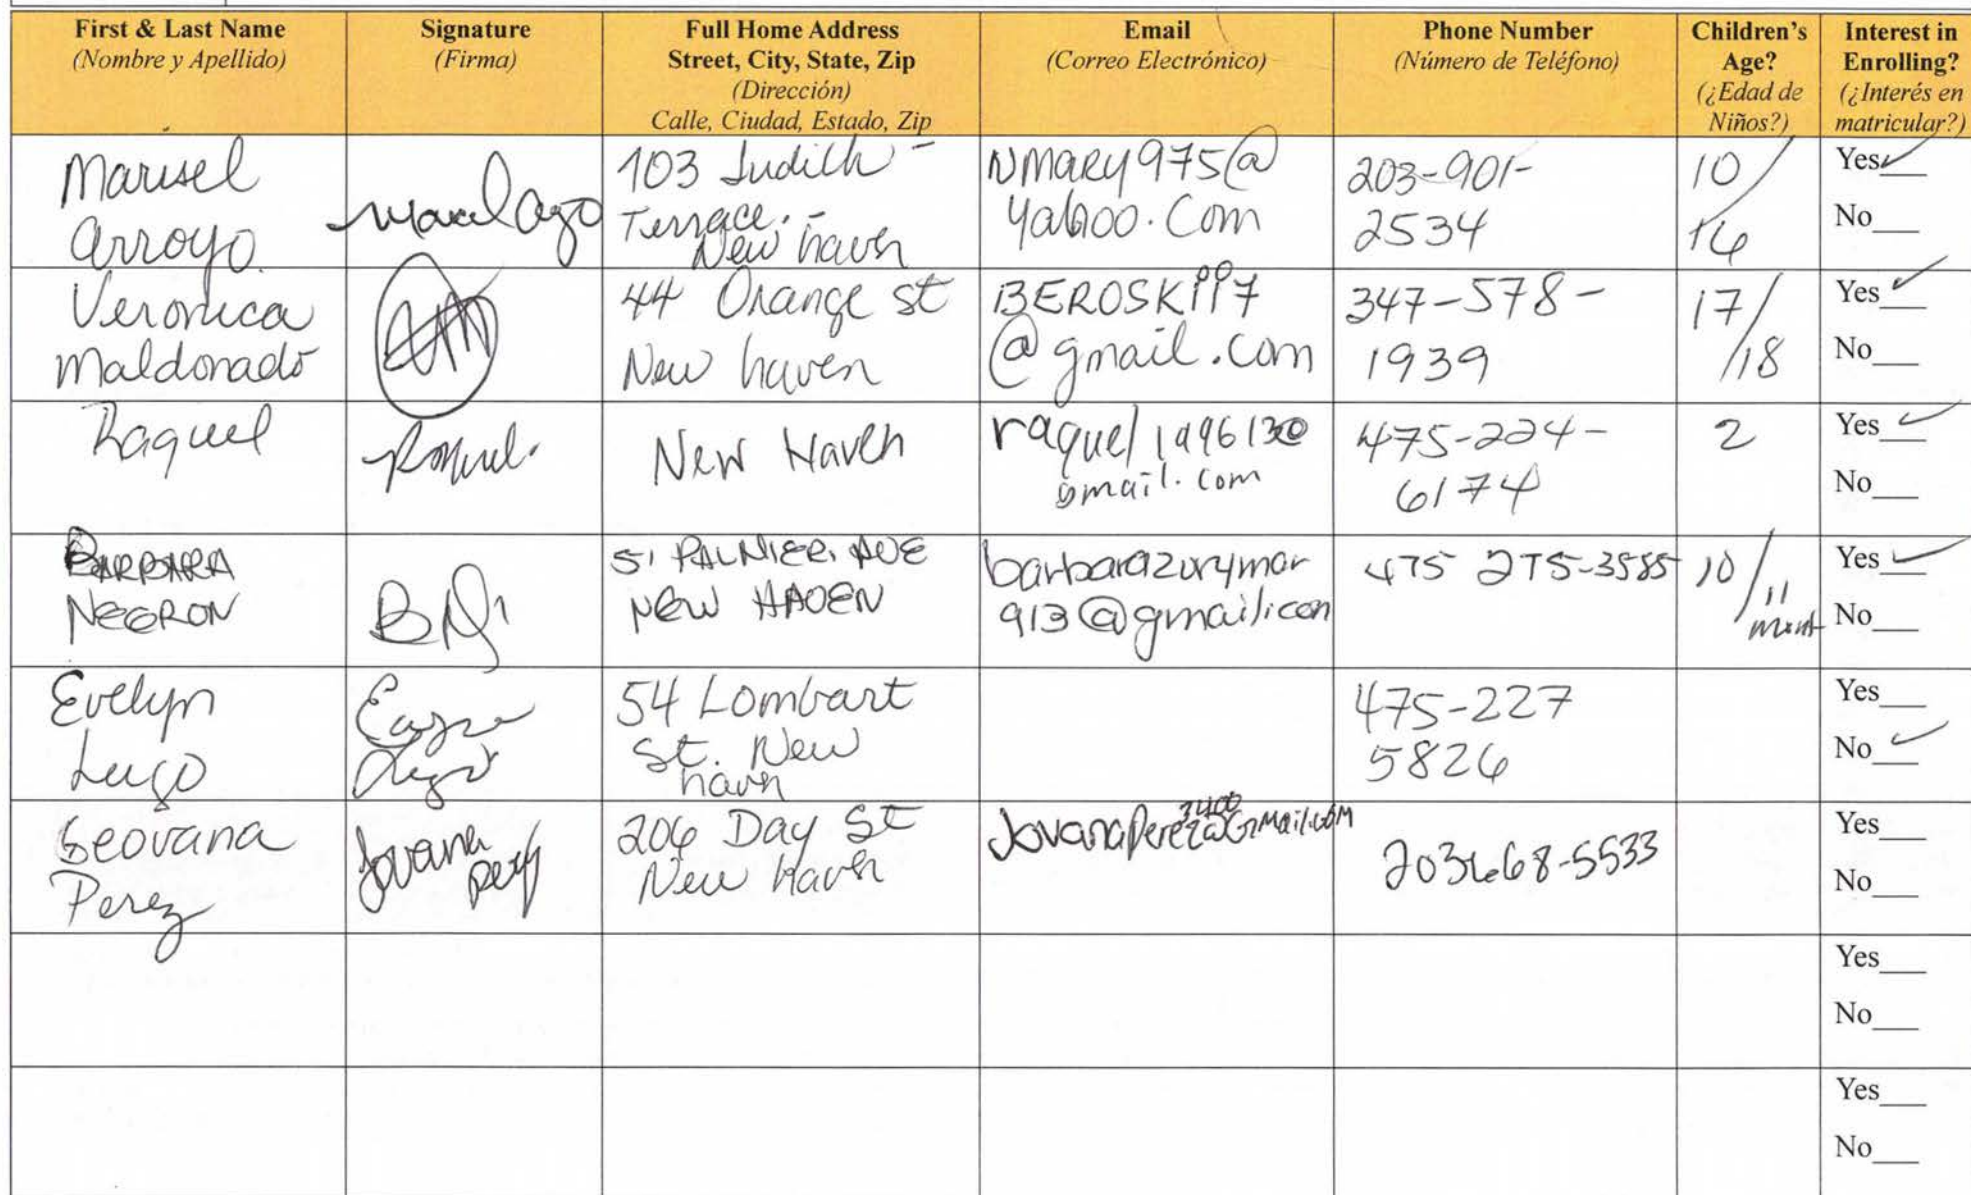 First & Last Name
(Nombre y Apellido)
Signature
(Firma)
Full Home Address
Street, City, State, Zip
(Dirección)
Calle, Ciudad, Estado, Zip
Email
(Correo Electrónico)
Phone Number
(Número de Teléfono)
Children's
Age?
(¿Edad de
Niños?)
Interest in
Enrolling?
(¿Interés en
matricular?)
Marisel
Arroyo
103 Judith
Terrace.
New haven
NMARY975@
Yahoo.Com
203-901-
2534
10/
16
Yes✓
No__
Veronica
Maldonado
44 Orange st
New haven
@gmail.com
347-578-
1939
17/
/18
Yes✓
No__
Raquel
New Haven
raquel199613@
gmail.com
475-224-
6174
2
Yes✓
No__
BARBARA
NEGRON
51 PALMIER AVE
NEW HAVEN
barbarazurymar
913@gmail.com
475 275-3585
10/
11
Yes✓
No__
Evelyn
Lugo
54 Lombart
St. New
haven
475-227
5826
Yes__
No✓
Geovana
Perez
Jovana
Perez
206 Day St
New Haven
JovanaPerez3400@Gmail.com
203668-5533
Yes__
No__
Yes__
No__
Yes__
No__